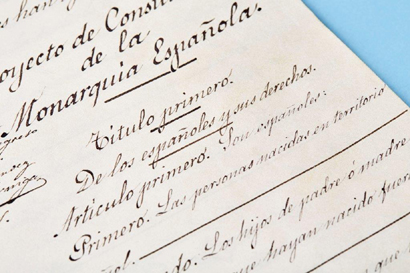 es han
oyecto de Consti
de la
Monarquía Española.
Título primero.
De los españoles y sus derechos.
Artículo primero. Son españoles:
Primero. Las personas nacidas en territorio
ñol.
do. Los hijos de padre ó madre
que hayan nacido fuera